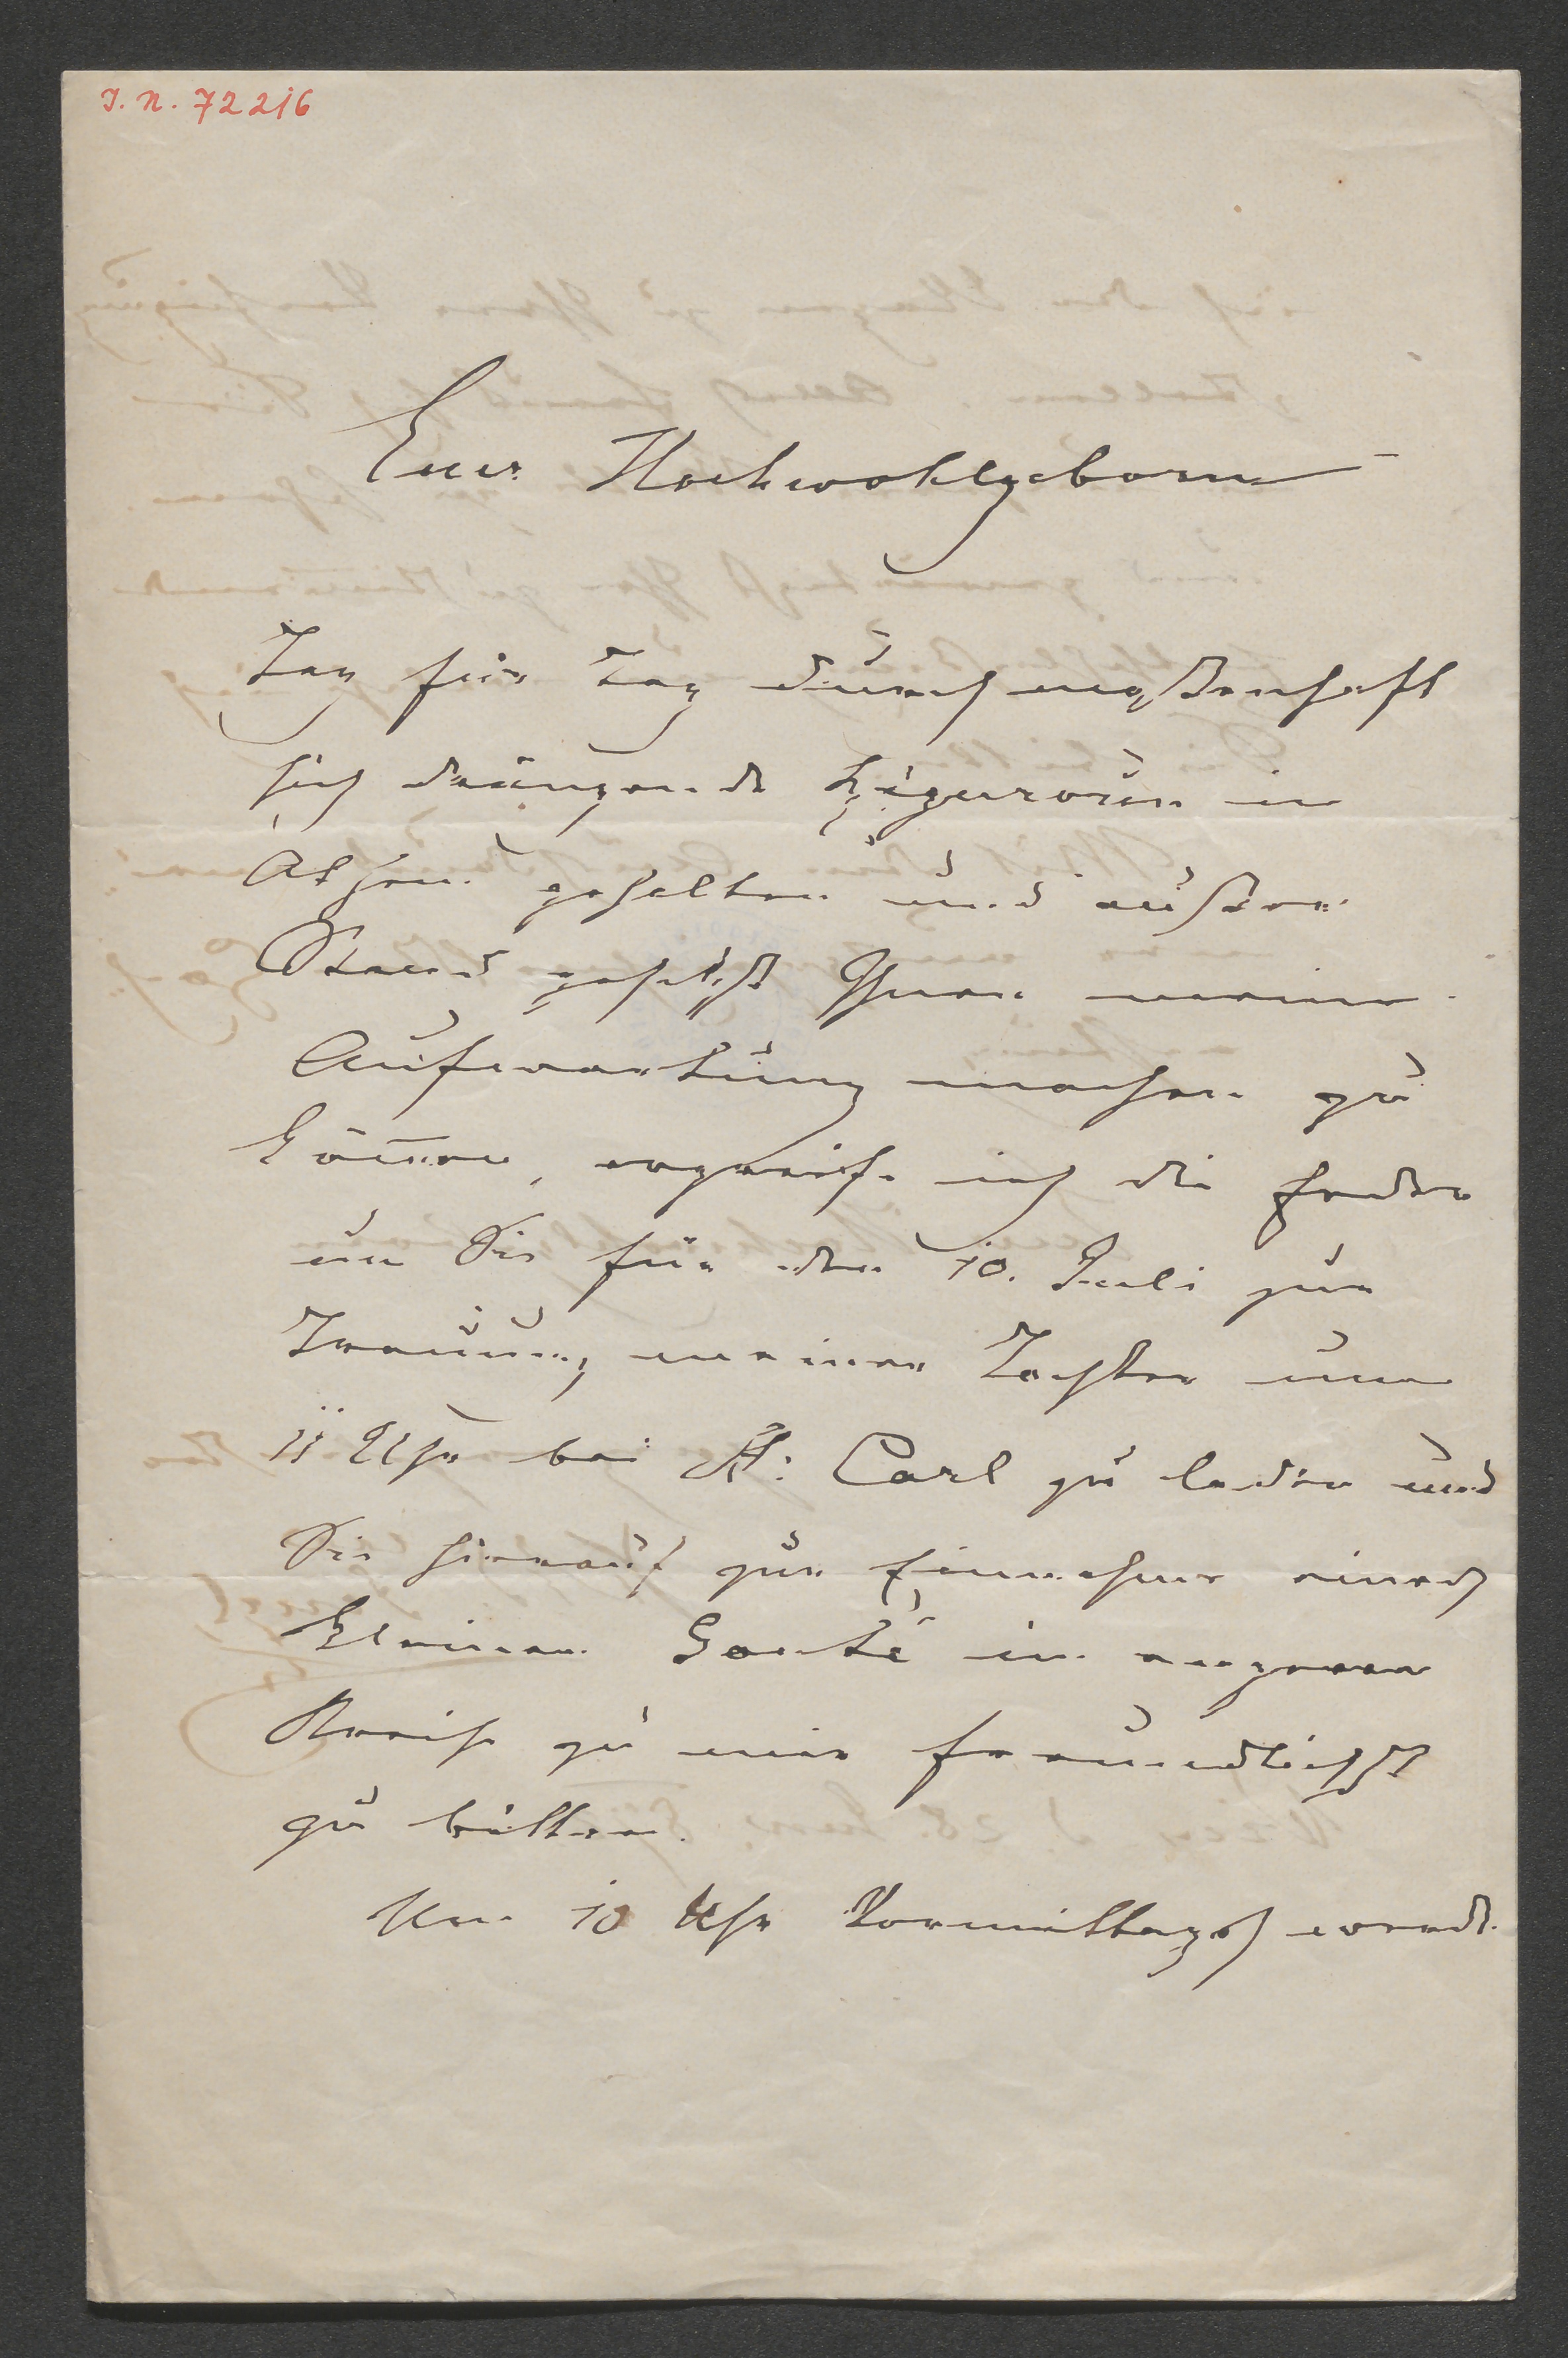 I. N. 72216
Euer Hochwohlgeboren
Tag für Tag durch massenhaft
sich drängende Rigorosen in
Athem gehalten und außer
Stand gesetzt Ihnen meine
Aufwartung machen zu
können, ergreife ich die Feder
um Sie für den 10. Juli zur
Trauung meiner Tochter um
11 Uhr bei St: Carl zu laden und
Sie hierauf zur Einnahme eines
kleinen Gouté im engeren
Kreise zu mir freundlichst
zu bitten.
Um 10 Uhr Vormittags werde